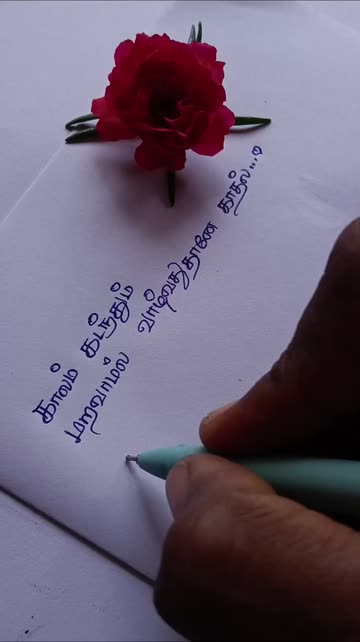 காலம் கடந்தும்
மறவாமல் வாழ்வதுதானே காதல்...♡